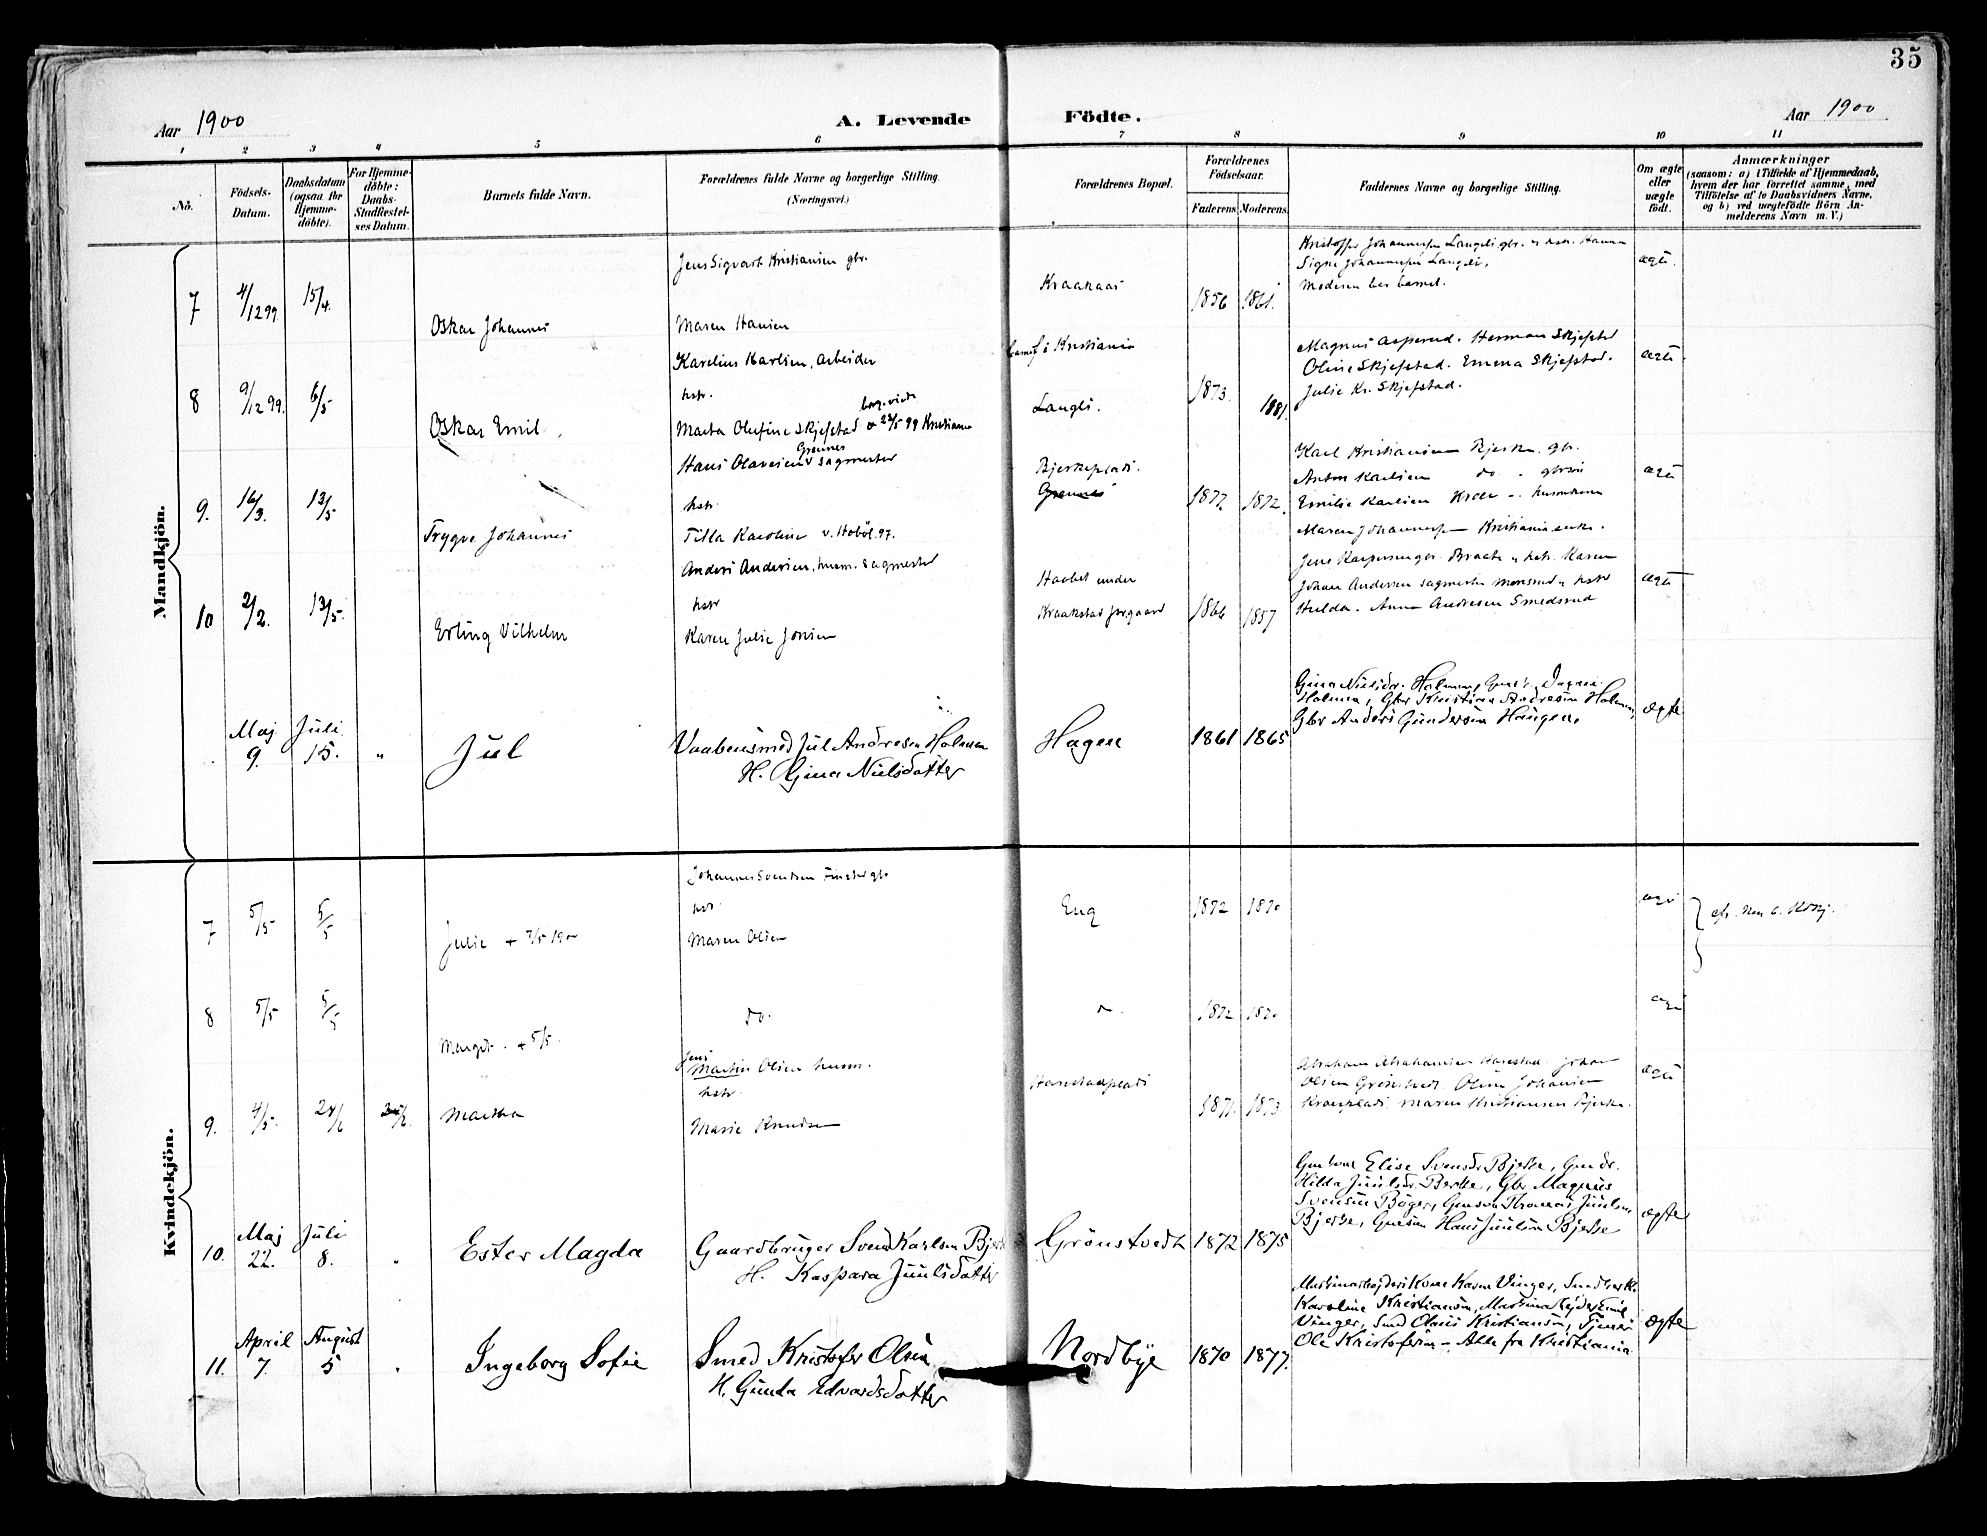 35
Aar 1900
A. Levende Födte.
Aar 1900
1 2 3 4 5 6 7 8 9 10 11
No.
Födsels-Datum.
Daabsdatum (ogsaa for Hjemme-döbte).
For Hjemme-döbte: Daabs-Stadfæstel-ses Datum.
Barnets fulde Navn.
Forældrenes fulde Navne og borgerlige Stilling. (Næringsvei.)
Forældrenes Bopæl.
Forældrenes Födselsaar.
Faderens. Moderens.
Faddernes Navne og borgerlige Stilling.
Om ægte eller uægte födt.
Anmærkninger
(saasom: a) i Tilfælde af Hjemmedaab,
hvem der har forrettet samme, med
Tilföielse af to Daabsvidners Navne,
og b) ved uægtefödte Börn An-
melderens Navn m. V.)
Mandkjön.
7 4/12 99. 15/4. Oskar Johannes
Jens Sigvart Kristiansen gbr.
Maren Hansen
Kraakaas 1856 1861.
Signe Johannesen Langli.
Moderen bar barnet.
ægte.
8 9/12 99. 6/5 Oskar Emil
Karelius Karlsen, arbeider
hstr.
Marta Olufine Skjefstad
borg. viet
23/5 99 Kristiania
barnef. i Kristiania
Langli. 1873. 1881.
Magnus Asperud. Herman Skjefstad
Oline Skjefstad. Emma Skjefstad.
Julie Kr. Skjefstad.
ægte
9. 16/3. 13/5 Trygve Johannes
Hans Olavesen v Grønnes sagmester
hstr.
Tilla Karoline v. Hobøl 97.
Bjerkeplads.
Grønnes
1872 1872.
Karl Kristiansen Bjerke gbr.
Anton Karlsen do
Emilie Karlsen
Maren Johannesen Kristiania
ægte
10 2/2. 13/5. Erling Vilhelm
Anders Andersen, husm. sagmester
hstr
Karen Julie Jonsen
under
Kraakstad prsgaard
1866 1857
Johan Andersen sagmester
Hulda. Anna Andresen Smedsrud
ægte
Maj 9. Juli 15. " Jul
Vaabensmed Jul Andresen Holmen
H. Gina Nielsdatter
Hagen 1861 1865
Gina Nielsdr. Holmen,
Holmen, Gbr Kristian Andresen Holmen,
Gbr Anders Gundersen Haugen.
ægte
Kvindekjön.
7 5/5 5/5 Julie + 7/5 1900
Johannes Svendsen gbr
hstr.
Maren Olsen
Eng 1872 1870
8 5/5 5/5 Margit. + 5/5.
do.
1872 1870
9. 4/5. 24/6 Martha
Jens
Martin Olsen husm.
hstr.
Marie Knudsen
Harestadplads
1871. 1873
Abraham Abrahamsen Harestad. Johan
Olsen Grönstvedt. Oline Johansen
Maren Kristiansen Bjerke.
ægte
10. Maj 22. Juli 8. Ester Magda
Gaardbruger Svend Karlsen Bjerke
H. Kaspara Juulsdatter
Grönstvedt 1872 1875
Gmkone Elise Svensdr Bjerke, Gmdr.
Hilda Juulsdr. Berke, Gbr Magnus
Svensen Böger, Gmsøn Thomas Juulsen
Bjerke, Gmsøn Hans Juulsen Bjerke
ægte
11. April 7. August 5 Ingeborg Sofie
Smed Kristofer Olsen
H. Gunda Edvardsdatter
Nordbye 1870 1877.
Maskinarbejders Kone Karen Vinger,
Karoline Kristiansen, Maskinarbejder Emil
Vinger, Smed Olaus Kristiansen,
Ole Kristofersen – Alle fra Kristiania
ægte